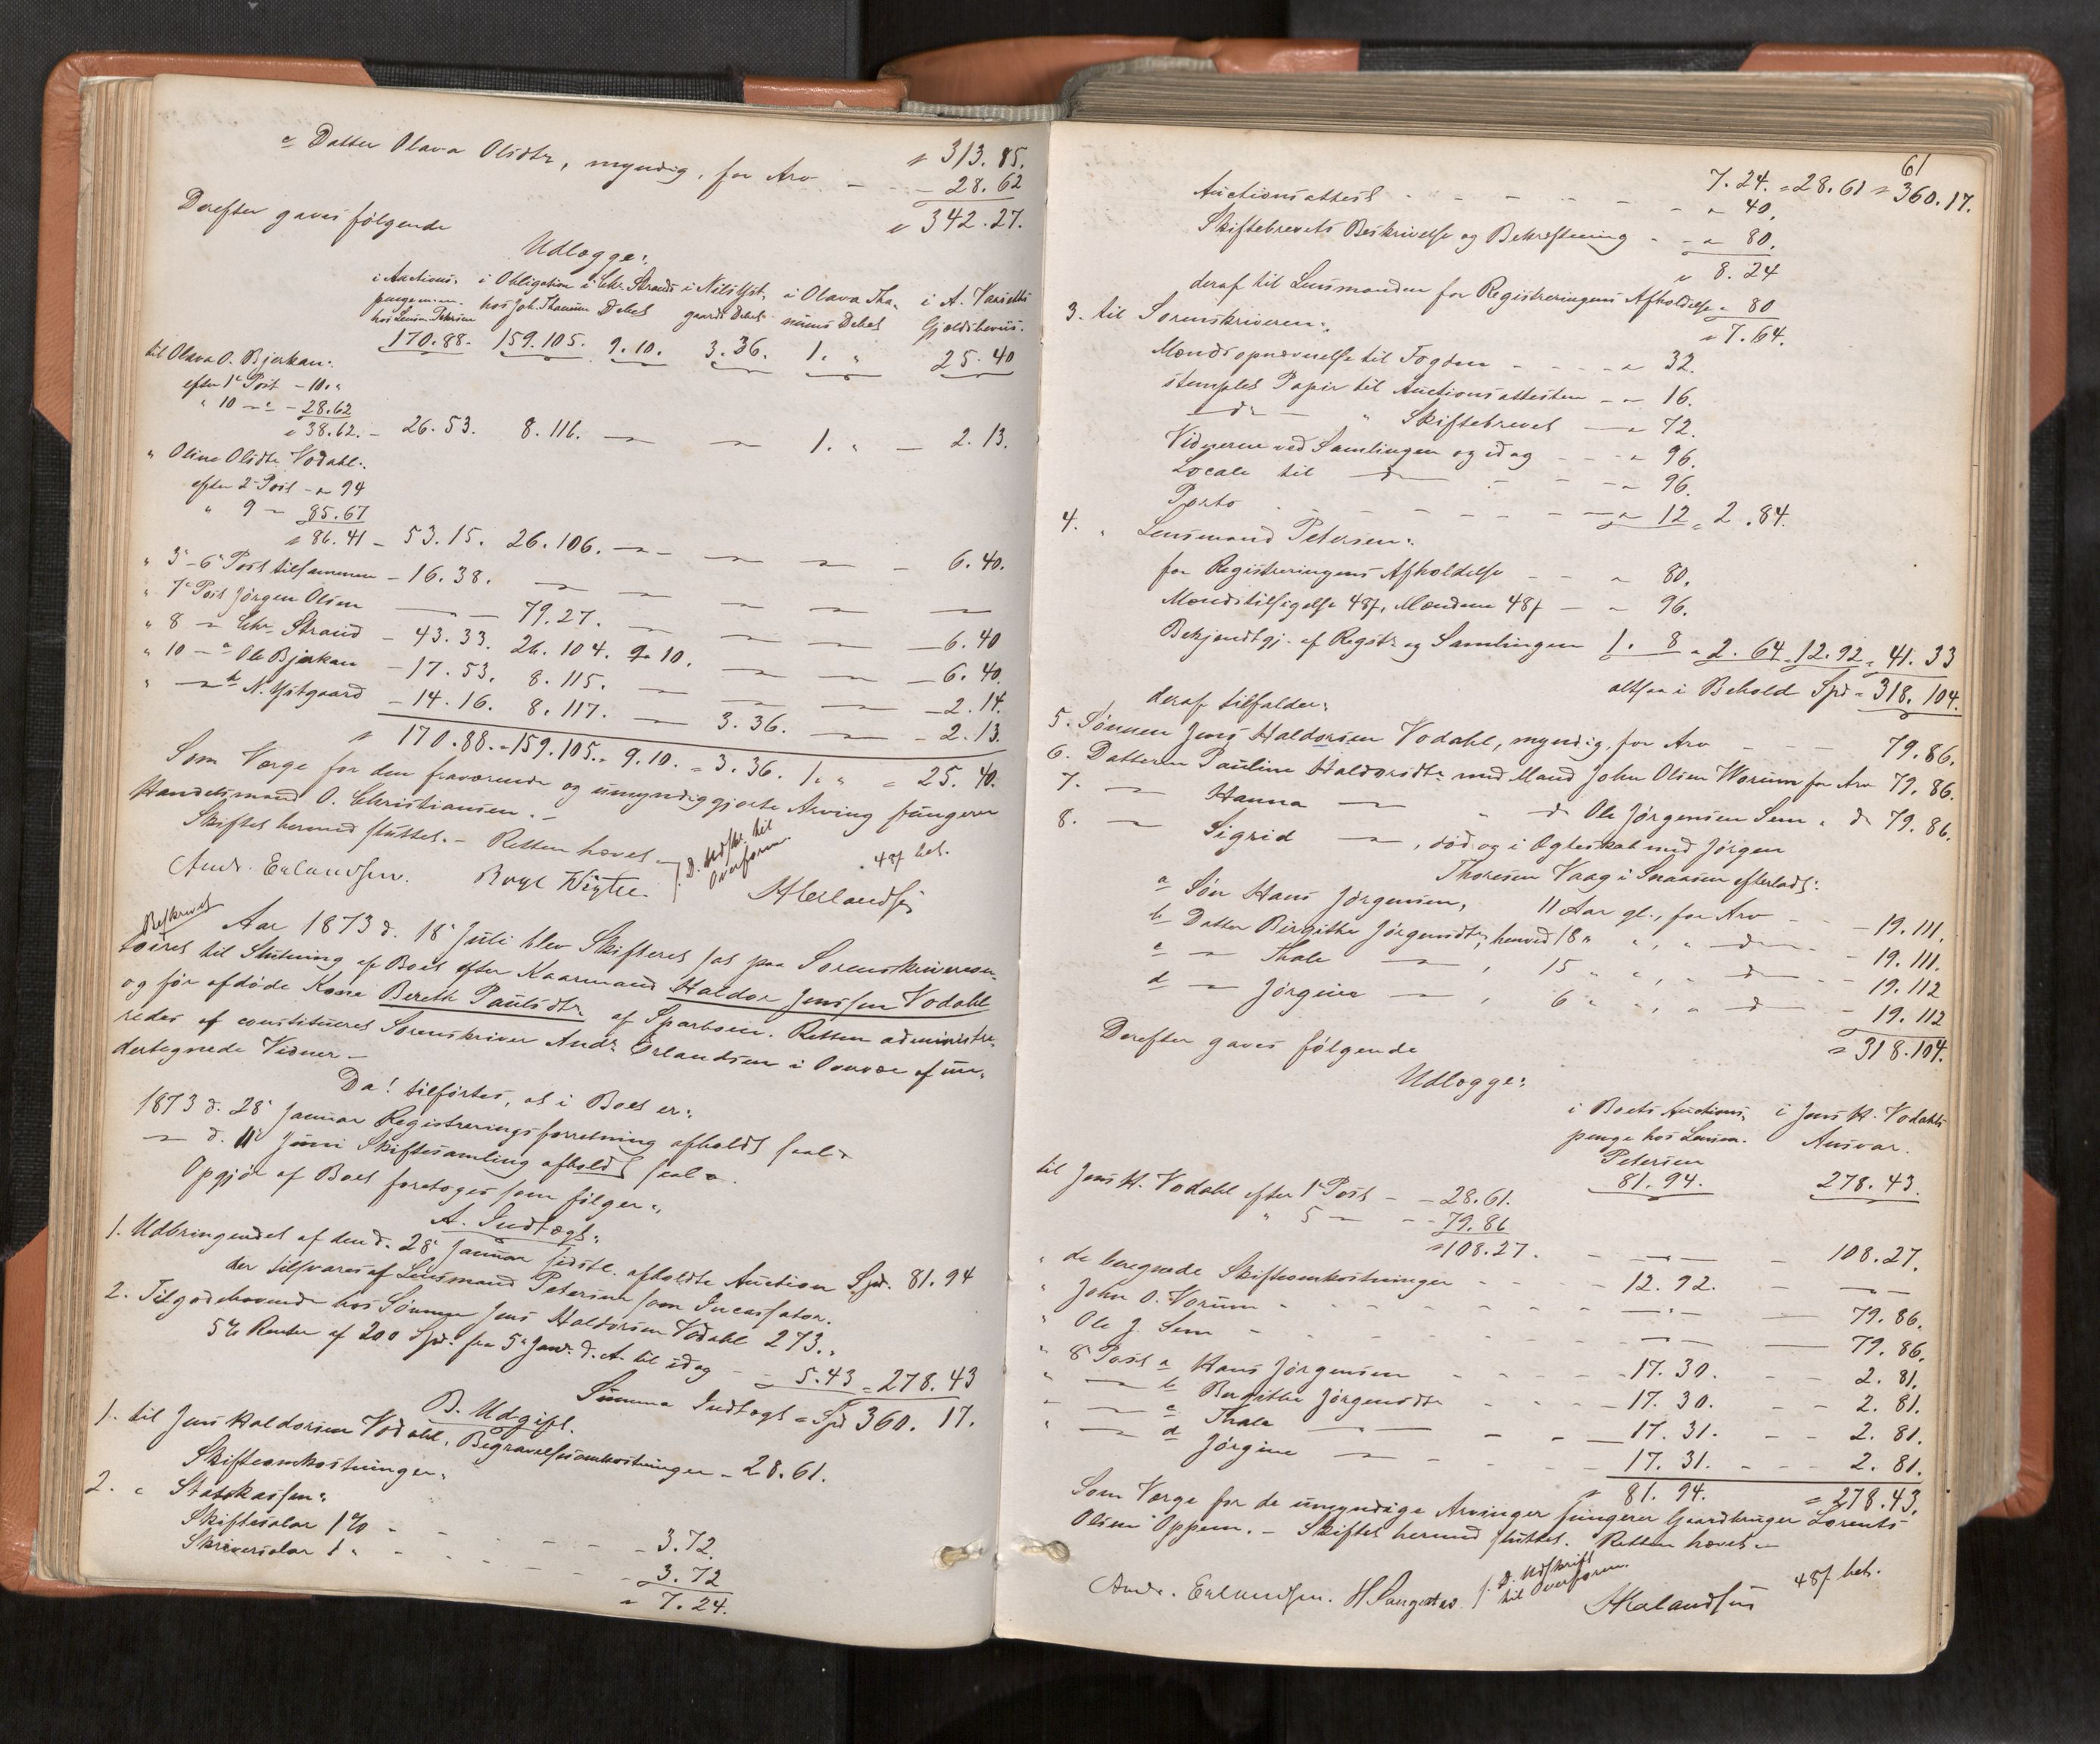 " 313. 85.
c Datter Olava Olsdtr, myndig, for Arv - - - 28. 62
" 342. 27.
Derefter gaves følgende
Udlægge:
i Auctions- i Obligation i Chr. Strands i Nils Yst- i Olava Tha- i A. Vansetts
pengene hos Joh. Thanum Debet gaards Debet nums Debet Gjældsbeviis.
hos Lensm. Petersen
170.88. 159.105. 9.10. 3.36. 1. " 25.40
til Olava O. Bjerkan:
efter 1e Post - 10. "
" 10 - c - 28.62
" 38.62. - 26.53. 8.116. — — 1. " — 2.13.
" Oline Olsdtr Vodahl:
efter 2 Post - " 94
" 9 — 85.67
" 86.41 - 53.15. 26.106. — — — — 6.40.
" 3 - 6 Post tilsammen - 16.38. — — — — —
" 7e Post Jørgen Olsen — 79.27. — — — — 6.40
" 8 — Chr. Strand - 43.33. 26.104. 9.10. — — — 6.40.
" 10 - a Ole Bjerkan - 17.53. 8.115. — — — — 2.14.
" — b N. Ystgaard - 14.16. 8.117. — 3.36. — — 2.13.
" 170.88. = 159.105. = 9.10. = 3.36. 1. " = 25.40.
Som Værge for den fraværende og umyndiggjorte Arving fungerer
Handelsmand O. Christiansen. -
Skiftet hermed sluttet. - Retten hævet -
Andr. Erlandsen.
f. D. Udskr. til
Overform.
48ß bet.
Beskrevet
Aar 1873 d. 18 Juli blev Skifteret sat paa Sorenskriverkon-
toiret til Slutning af Boet efter Kaarmand Haldor Jenssen Vodahl
og før afdøde Kone Bereth Paulsdtr af Sparboen. Retten administre-
redes af constitueret Sorenskriver Andr. Erlandsen i Overvær af un-
dertegnede Vidner. -
Da! tilførtes, at i Boet er:
1873 d. 28 Januar Registreringsforretning afholdt saal.
— d. 11 Juni Skiftesamling afholdt saal.
Opgjør af Boet foretoges som følger:
A. Indtægt:
1. Udbringendet af den d. 28 Januar sidstl. afholdte Auction Spd. 81.94
der tilsvares af Lensmand Petersen som Incassator.
2. Tilgodehavende hos Sønnen Jens Haldorsen Vodahl 273. "
5% Renter af 200 Spd. fra 5 Janr. d. A. til idag - 5.43 = 278.43
Summa Indtægt = Spd 360. 17.
B. Udgift.
1. til Jens Haldorsen Vodahl, Begravelsesomkostninger - 28.61.
Skifteomkostninger:
2. " Statskassen:
Skiftesalar 1% - - - - - - 3.72.
Skriversalar 1 " - - - - - - 3.72
" 7.24.
61
7.24. = 28.61 " 360.17.
Auctionsattest - - - - - - " 40.
Skiftebrevets Beskrivelse og Bekræftning - - " 80.
" 8. 24
deraf til Lensmanden for Registreringens Afholdelse " 80
" 7.64.
3. til Sorenskriveren:
Mændsopnævnelse til Fogden - - - - " 32.
stemplet Papir til Auctionsattesten - " 16.
— do — " Skiftebrevet — " 72.
Vidnerne ved Samlingen og idag - - - " 96.
Locale til — do — - - - " 96.
Porto - - - - - - " 12 = 2.84.
4. " Lensmand Petersen:
for Registreringens Afholdelse - - " 80.
Mændstilsigelse 48ß, Mændene 48ß - " 96.
Bekjendtgj. af Registr. og Samlingen 1. 8 = 2.64 = 12.92 = 41. 33
altsaa i Behold Spd = 318. 104.
deraf tilfalder:
5. Sønnen Jens Haldorsen Vodahl, myndig, for Arv - - - 79.86.
6. Datteren Pauline Haldorsdtr med Mand John Olsen Worum for Arv 79.86.
7. — Hanna — " do Ole Jørgensen Sem " do 79.86.
8. — Sigrid — , død og i Ægteskab med Jørgen
Thoresen Vaag i Snaasen efterladt:
a Søn Hans Jørgensen, 11 Aar gl., for Arv - - 19.111.
b Datter Birgitha Jørgensdtr, henved 18 " " , " do - 19.111.
c — Thale — , 15 " " , " do - - 19.112
d — Jørgine — , 6 " " , " do - - 19.112
" 318.104.
Derefter gaves følgende
Udlægge:
i Boets Auctions- i Jens H. Vodahls
penge hos Lensm. Ansvar.
Petersen
81.94. 278.43.
til Jens H. Vodahl efter 1e Post - - 28.61.
" 5 — - - 79.86
" 108.27. - — - 108.27.
" de beregnede Skifteomkostninger - - - 12.92. - — -
" John O. Vorum - - - - - — - — 79.86.
" Ole J. Sem - - - - - — - — 79.86.
" 8 Post a Hans Jørgensen - - - - 17.30. - - 2.81.
" — b Birgitha Jørgensdtr - - - 17.30. - - 2.81.
" — c Thale — - - - 17.31. - - 2.81.
" — d Jørgine — - - - 17.31. - - 2.81.
" 81.94. = 278.43.
Som Værge for de umyndige Arvinger fungerer Gaardbruger Lorents
Olsen Oppem. - Skiftet hermed sluttet. Retten hævet -
Andr. Erlandsen.
f. D. Udskrift
til Overform.
48ß bet.